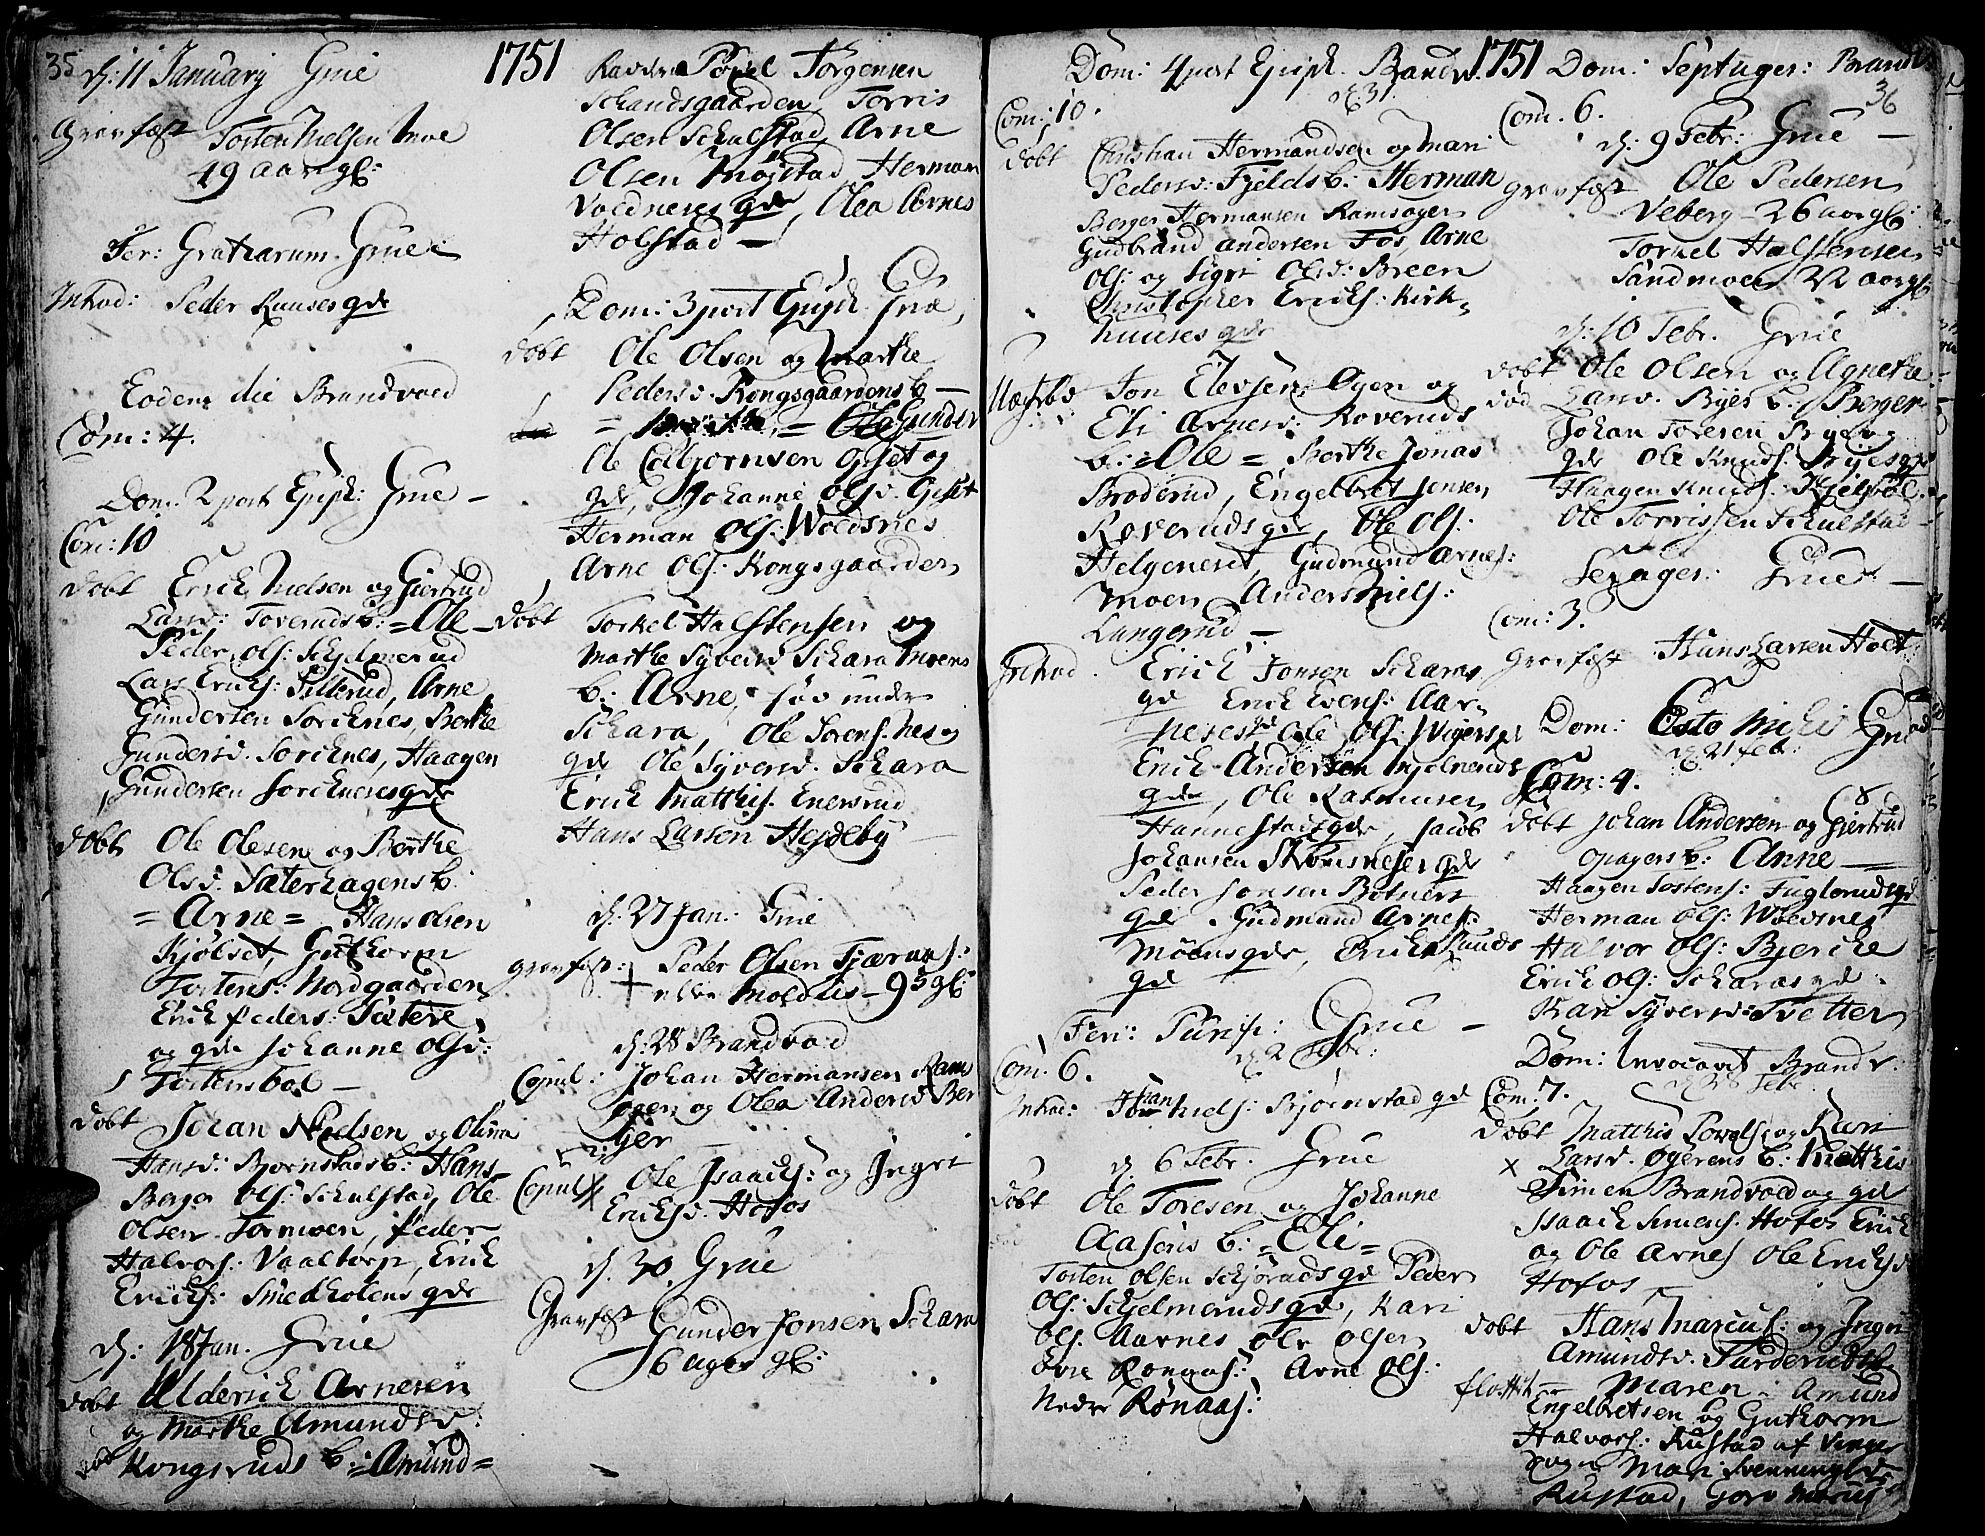 35
d: 11 January Grue
1751
Gravfæst Tosten Nielsen Moe
49 aar gl:
Fer: Gratiarum Grue
Introd: Peder Ruusesgde
Eodem die Brandvoed
Com: 4.
Dom. 2 post Epiph: Grue
Com: 10
døbt Erich Nielsen og Giertrud
Larsd: Toverudsb: = Ole
Peder Ols: Skielmerud
Lars Erichs: Pillerud, Arne
Gundersen Sorknes, Berthe
Gundersd. Sorcknes, Haagen
Gundersen Sorcknesesgde
døbt Ole Olesen og Berthe
Olsd. Sæterhagens b:
= Arne = Hans Olsen
Kjølset, Guthorm
Tostens: Nordgaarden
Erich Peders: Sætere
og gde Johanne Olsd:
Tostensbøl
døbt Johan Nielsen og Olina
Hansd: Biørnstadsb: Hans
Berger Ols: Schulstad, Ole
Olsen Tormoen, Peder
Halvors: Vaaltorp, Erich
Erichs: Smedholens gde
d: 18 Jan. Grue
døbt Alderich Arnesen
og Marthe Amundsd:
Kongsruds b: = Amund =
Povel Jørgensen
Schandsgaarden, Torris
Olsen Schulstad, Arne
Olsen Møystad, Herman
Voldneses gde, Olea Arnes
Holstad
Dom: 3 post Epiph. Grue
døbt Ole Olsen og Marthe
Pedersd. Kongsgaardens b
Ole Colbjornsen Opset og
gde, Johanne Olsd. Opset
Herman Ols: Woldsnes
Arne Ols: Kongsgaarden
døbt Torkel Halstensen og
Marthe Syversd Schara Moens
b: Arne, fød under
Schara, Ole Sorens. Nes og
gde Ole Syversd. Schara
Erich Matthis. Enersrud
Hans Larsen Hejdeby
d: 27 Jan: Grue
gravfæst: Peder Olsen Tjærnas:
eller Moldus 95 gl:
d: 28 Brandvoed
Copul: Johan Hermansen Ram
ogen og Olea Andersd Ber
ger
Copul: Ole Isaachs: og Ingri
Erichsd. Hofos
d. 30 Grue
Gravfæst Gunder Jonsen Schara
16 uger gl:
Dom: 4 post Epiph. Brandv.
d. 31
1751
Com: 10.
døbt Christian Hermandsen og Mari
Pedersd: Fjelds b: Herman
Berger Hermansen Ramsogen
Gudbrand Andersen Fos, Arne
Ols: og Sigri Olsd: Breen
Christopher Erichs: Kirk
huuses gde
Jon Elevsen Ogen og
Eli Arnesd. Roveruds
b: = Ole = Berthe Jonas
Broderud, Engelbret Jensen
Roverudsgde, Ole Ols:
Helgeneset, Gudmund Arnes:
Moen Anders Niels:
Lungerud
Introd. Erich Jonsen Scharas
gd Erich Evens: Aar
neset gd Ole Ols: Wigers gd
Erich Andersen Mjølnerud
gde, Ole Rasmusen
Hannestadsgde, Jacob
Johansen Skromsneses gde
Peder Jonsen Botners
gde Gudmund Arnes:
Moensgde, Erich Lunds
gde
Feri: Purif: Grue
d. 2 Febr:
Com: 6.
Introd: Johan Niels: Bjørnstad gd
d. 6 Febr. Grue
døbt Ole Toresen og Johanne
Aasens b: = Eli =
Tosten Olsen Schjøruds gd Peder
Ols: Schjelmerudsgd, Kari
Ols. Aarnes Ole Olsen
Øvre Rønaas: Arne Ols:
Nedre Rønaas:
Dom: Septuges: Brandv
36
Com. 6.
d: 9 Febr: Grue
gravfæst Ole Pedersen
Veberg 26 aar gl:
Torkel Halstensen
Sandmoen 22 aar gl
d: 10 Febr. Grue
døbt Ole Olsen og Agnethe
død Larsd. Byes b. Berger
Johan Toresen Bye og
gde Ole Knuds: Byesgde
Haagen Knuds: Kjelsbøl
Ole Torrissen Schulstad
Sexages: Grue
Com: 3.
Gravfæst Hans Larsen Hoel
Dom: Esto Mihi Grue
d. 21 Feb:
Com: 4.
døbt Johan Andersen og Gjertrud
Opagers b: Anne
Haagen Tostens: Fuglerudsgd
Herman Ols: Woldsnes
Halvor Ols: Bjercke
Erich Ols: Scharas gde
Kari Syversd: Tvetter
Dom: Invocavit Brandv.
d. 28 Febr.
Com: 7.
døbt Matthis Povels: og Kari
Larsd. Ogerens b: Matthis
Simen Brandvoed og gd
Isaach Simens. Hofos Erich
og Ole Arnes Ole Erichsd
Hofos
døbt Hans Marcus: og Ingri
Amundsd. Furderudsb
= Maren = Amund
Engelbretsen og Guthorm
Halvors: Rustad af Vinger
og Mari Svennings
Rustad, Goro Marcus